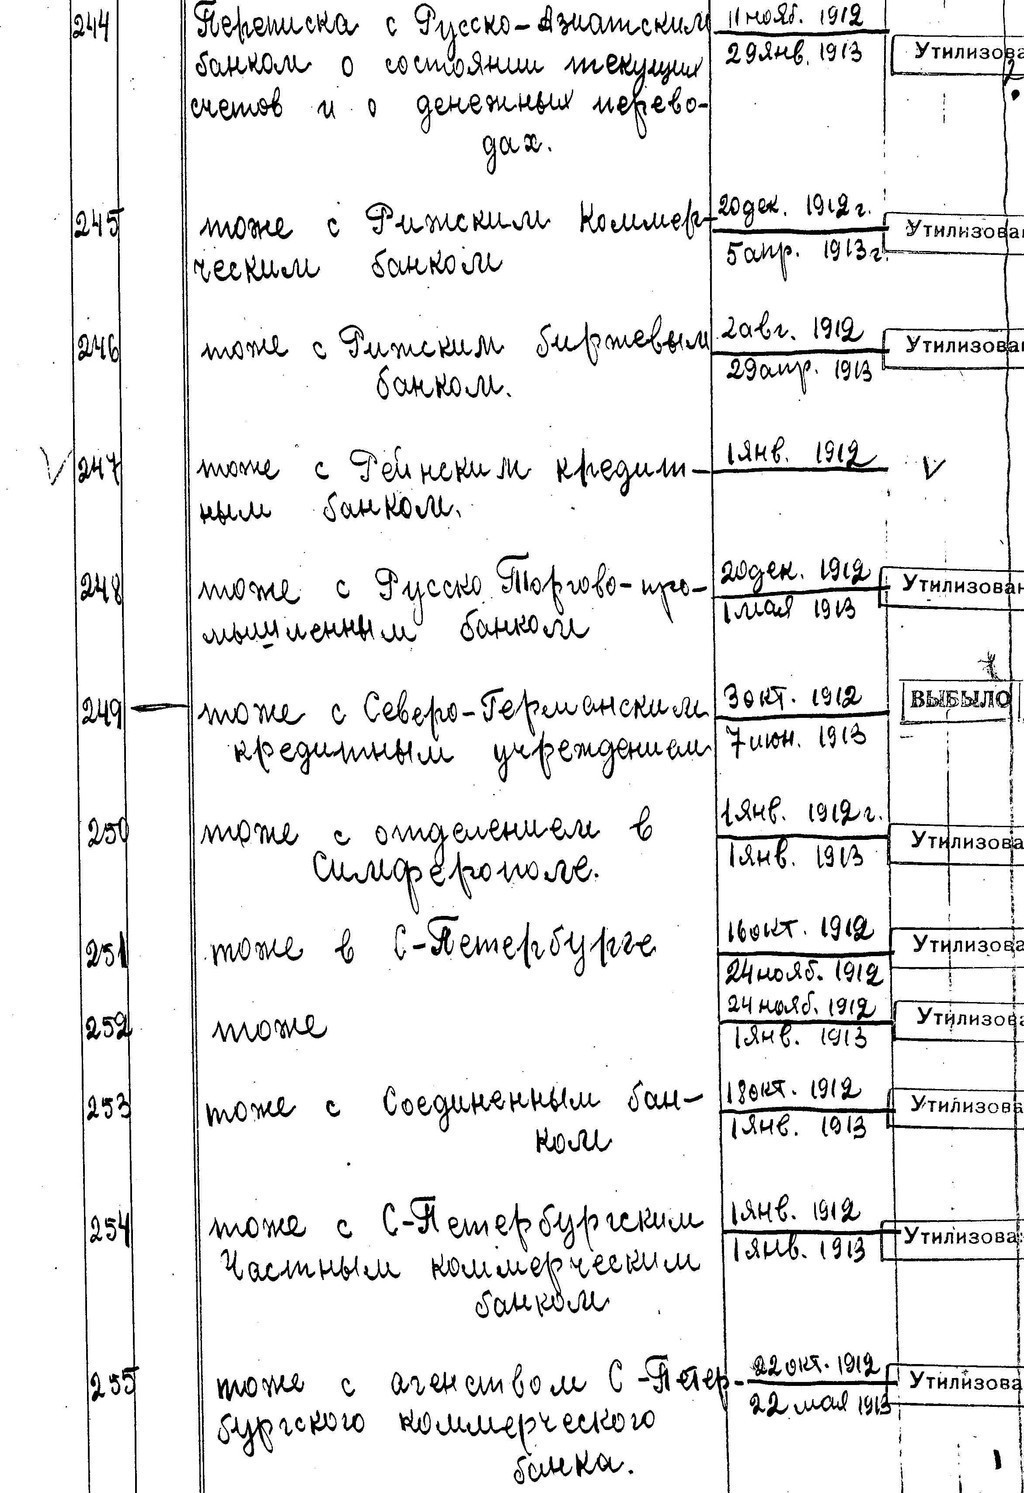 244 Переписка с Русско-Азиатским 11 нояб. 1912
банком о состоянии текущих 29 янв. 1913 Утилизова
счетов и о денежных перево-
дах.
245 тоже с Рижским Коммер- 20 дек. 1912 г. Утилизова
ческим банком 5 апр. 1913 г.
246 тоже с Рижским биржевым 2 авг. 1912 Утилизован
банком. 29 апр. 1913
V 247 тоже с Рейнским кредит- 1 янв. 1912 V
ным банком.
248 тоже с Русско Торгово-про- 20 дек. 1912 Утилизован
мышленным банком 1 мая 1913
249 тоже с Северо-Германским 3 окт. 1912 ВЫБЫЛО
кредитным учреждением 7 июн. 1913
250 тоже с отделением в 1 янв. 1912 г. Утилизова
Симферополе. 1 янв. 1913
251 тоже в С-Петербурге 16 окт. 1912 Утилизова
24 нояб. 1912
252 тоже 24 нояб. 1912 Утилизова
1 янв. 1913
253 тоже с Соединенным бан- 18 окт. 1912 Утилизова
ком 1 янв. 1913
254 тоже с С-Петербургским 1 янв. 1912 Утилизова
Частным коммерческим 1 янв. 1913
банком
255 тоже с агенством С-Петер- 22 окт. 1912 Утилизова
бургского коммерческого 22 мая 1913
банка.